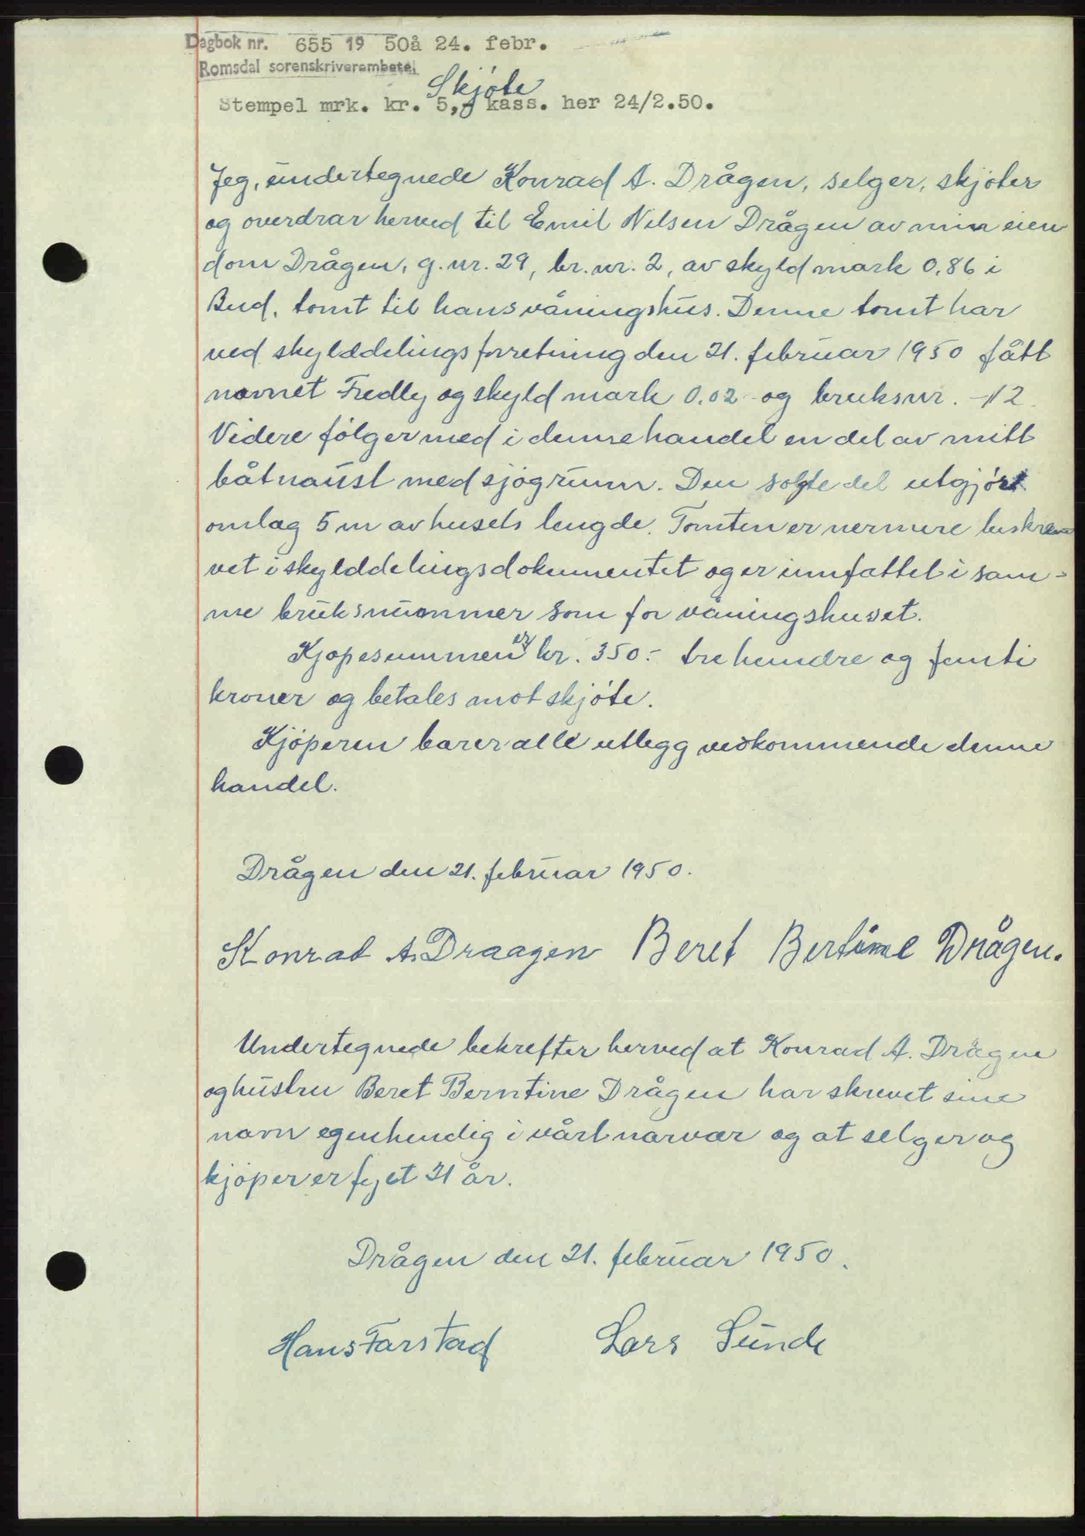 Dagbok nr. 655 19 50å 24. febr.
Romsdal sorenskriverembete
Skjöte
Stempel mrk. kr. 5,- kass. her 24/2.50.
Jeg, undertegnede Konrad A. Drågen, selger, skjöter
og overdrar herved til Emil Nilsen Drågen av min eien
dom Drågen, g.nr. 29, br.nr. 2, av skyld mark 0,86 i
Bud, tomt til hans våningshus. Denne tomt har
ved skylddelingsforretning den 21. februar 1950 fått
navnet Fredly og skyld mark 0.02 og bruksnr. 12
Videre fölger med i denne handel en del av mitt
båtnaust med sjögrunn. Den solgte del utgjör
omlag 5 m av husets lengde. Tomten er nermere beskre
vet i skylddelingsdokumentet og er innfattet i sam-
me bruksnummer som for våningshuset.
Kjöpesummen er kr. 350.- tre hundre og femti
kroner og betales mot skjöte.
Kjöperen bærer alle utlegg vedkommende denne
handel.
Drågen den 21. februar 1950.
Konrad A. Draagen Beret Bertine Drågen.
Undertegnede bekrefter herved at Konrad A. Drågen
og hustru Beret Berntine Drågen har skrevet sine
navn egenhendig i vårt nærvær og at selger og
kjöper er fyet 21 år.
Drågen den 21. februar 1950.
Hans Farstad Lars Sunde